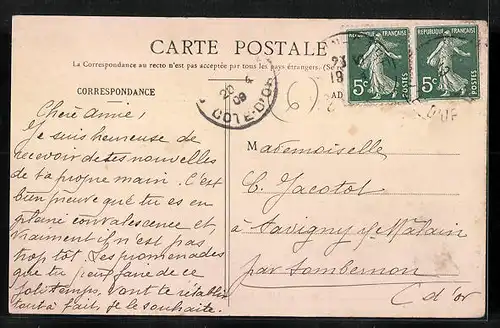 CARTE POSTALE
La Correspondance au recto n'est pas acceptée par tous les pays étrangers. (Se
CORRESPONDANCE
Chère amie,
Je suis heureuse de
recevoir de tes nouvelles
de ta propre main. C'est
bien preuve que tu es en
pleine convalescence et,
vraiment il n'est pas
trop tôt. Les promenades
que tu peux faire de ce
joli temps, vont te rétablir
tout à fait, je le souhaite.
20
09
COTE-D'OR
6
REPUBLIQUE FRANÇAISE
5c
POSTES
REPUBLIQUE FRANÇAISE
5c
POSTES
Mademoiselle
C. Jacotot
à Savigny s/ Mâlain
par Sombernon
C d'or